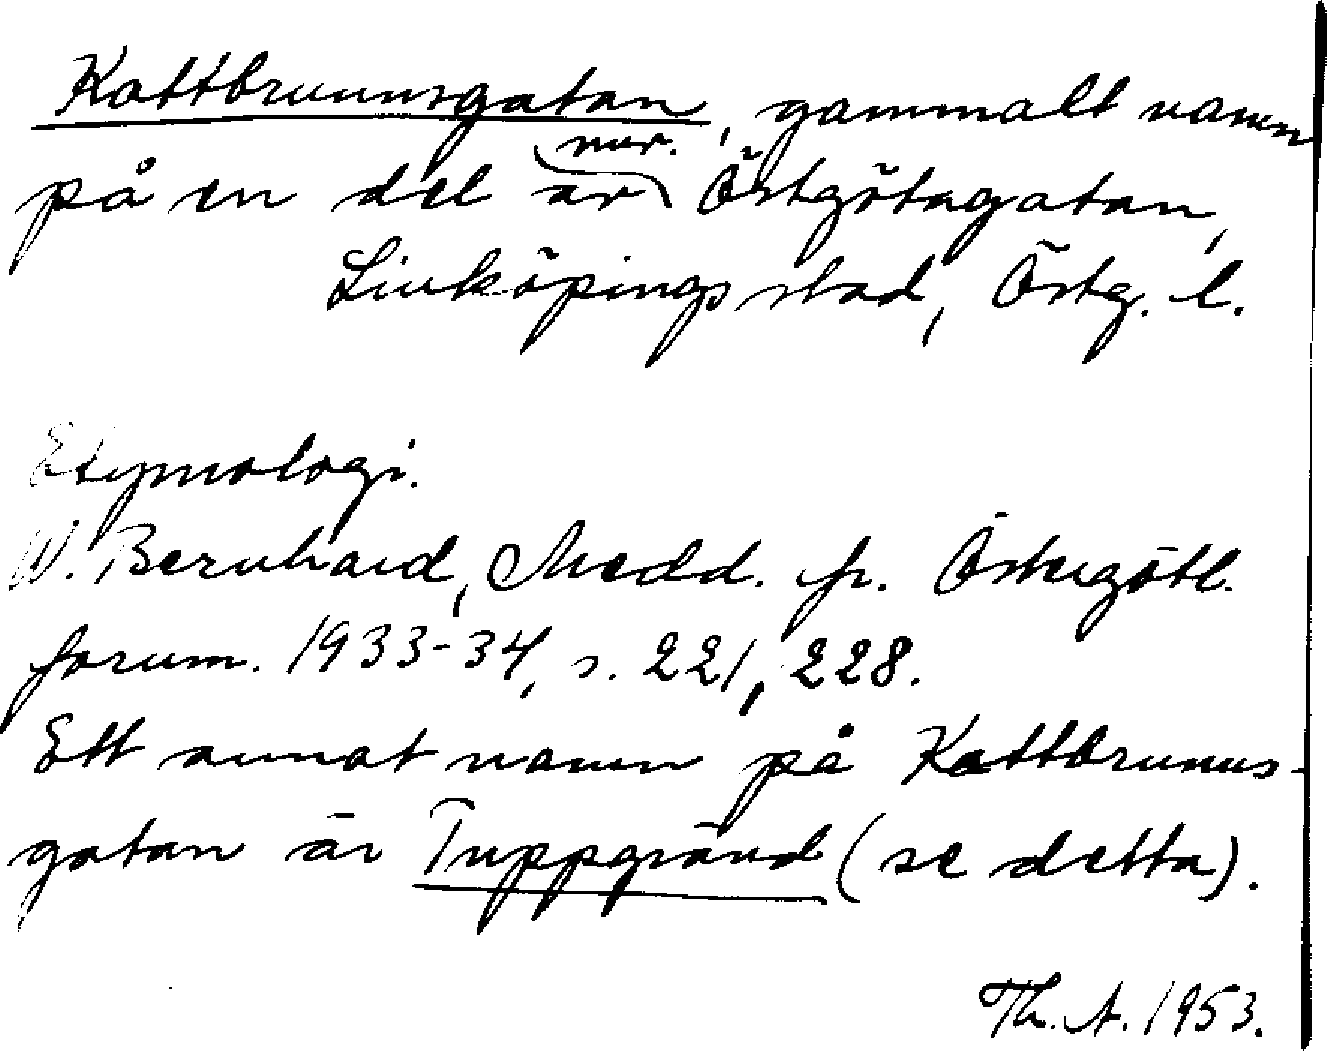 Kattbrunnsgatan, gammalt namn
på en del av nuv. Östgötagatan,
Linköpings stad, Östg. l.
Etymologi.
W. Bernhard, Medd. fr. Östergötl.
fornm. 1933-34, s. 221, 228.
Ett annat namn på Kattbrunns-
gatan är Tuppgränd (se detta).
Th. A. 1953.